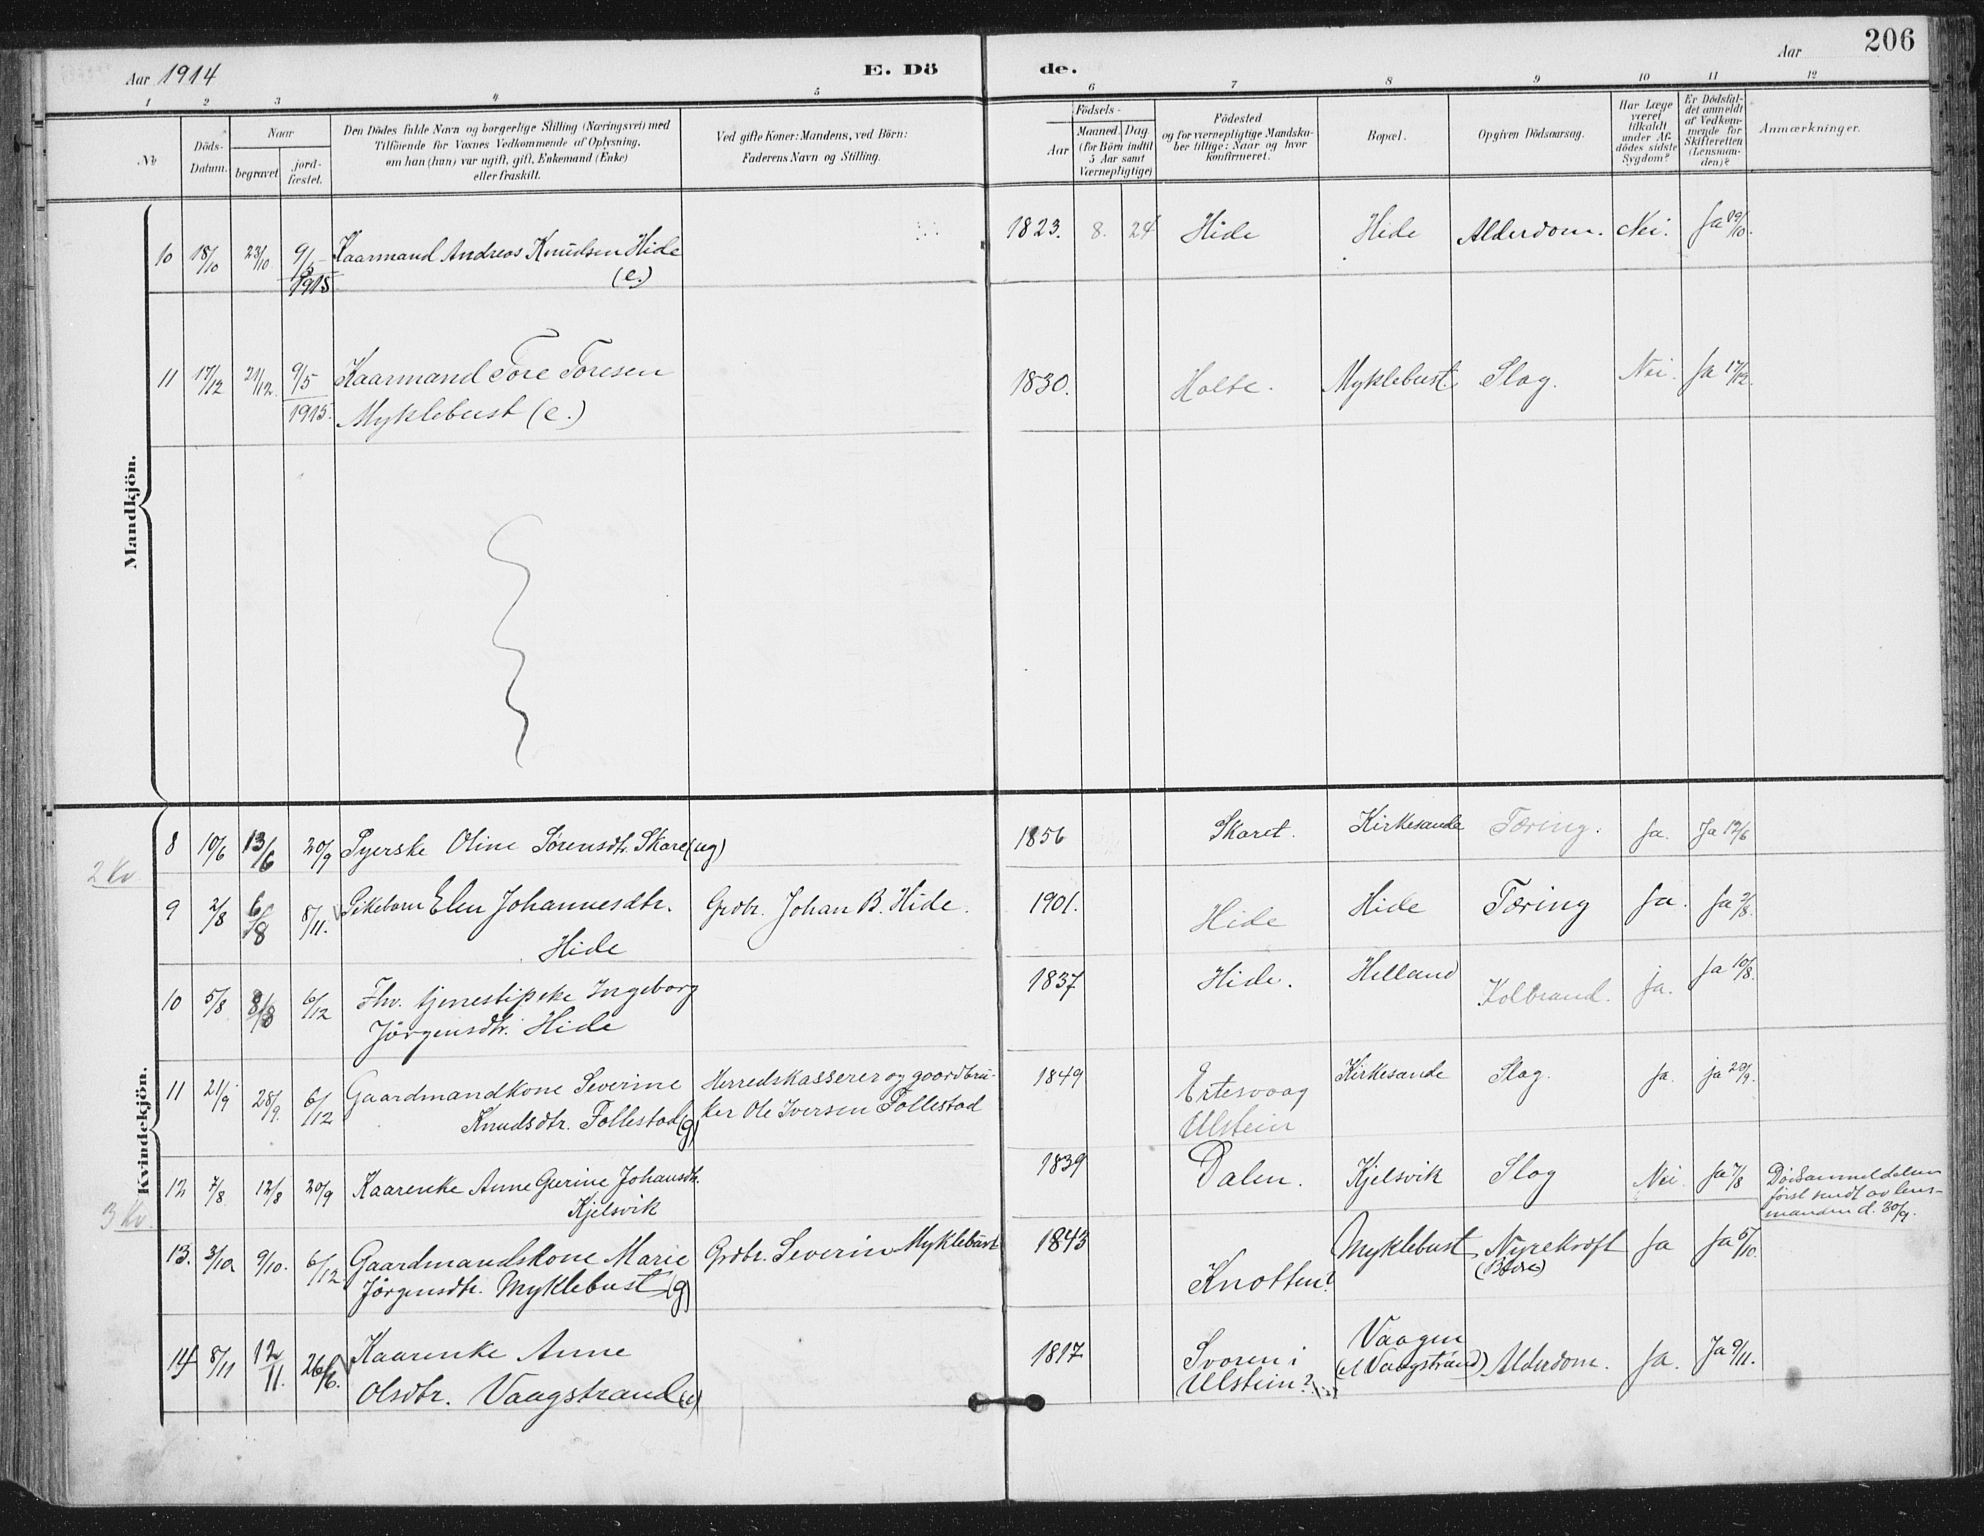 Aar 1914
E. Dö
de.
Aar
206
1 2 3 4 5 6 7 8 9 10 11 12
No
Döds-
Datum.
Naar
begravet
jord-
fæstet.
Den Dödes fulde Navn og borgerlige Stilling (Næringsvei) med
Tilföiende for Voxnes Vedkommende af Oplysning,
om han (hun) var ugift, gift, Enkemand (Enke)
eller fraskilt.
Ved gifte Koner: Mandens, ved Börn:
Faderens Navn og Stilling.
Födsels-
Aar
Maaned Dag
(for Börn indtil
5 Aar samt
Værnepligtige)
Födested
og for værnepligtige Mandska-
ber tillige: Naar og hvor
konfirmeret.
Bopæl.
Opgiven Dödsaarsag.
Har Læge
været
tilkaldt
under Af-
dödes sidste
Sygdom?
Er Dödsfal-
det anmeldt
af Vedkom-
mende for
Skifteretten
(Lensman-
den)?
Anmærkninger.
Mandkjön.
10 18/10 23/10 9/5 Kaarmand Andreas Knudsen Hide 1823. 8. 24 Hide Hide Alderdom. Nei. Ja 19/10.
1915 (e.)
11 17/12 21/12. 9/5 Kaarmand Tore Toresen 1830. Holte. Myklebust Slag. Nei. Ja 17/12.
1915. Myklebust (e.)
Kvindekjön.
8 10/6 13/6 20/9 Syerske Oline Sørensdtr. Skare (ug) 1856 Skaret. Kirkesande Tæring. Ja. Ja 12/6
2 Kv
9 2/8 6/8 8/11. Pikebarn Elen Johannesdtr. Grdbr. Johan B. Hide. 1901. Hide Hide Tæring Ja. Ja 3/8.
Hide
10 5/8 8/8 6/12 Fhv. tjenestipeke Ingeborg 1837 Hide. Helland Kolbrand. ja. Ja 10/8.
Jörgensdtr. Hide
11 21/9 28/9. 6/12 Gaardmandkone Severine Herredskasserer og gaardbru- 1849 Ertesvaag Kirkesande Slag. ja. ja 20/9.
Knudsdtr. Follestad (g) ker Ole Iversen Follestad Ulstein
12 7/8 12/8 20/9 Kaarenke Anne Gurine Johansdtr. 1839 Dalen. Kjelsvik Slag Nei. Ja 7/8 Dödsanmeldelsen
Kjelsvik först sendt av lens-
manden d. 30/9.
3 Kv.
13. 3/10 9/10. 6/12 Gaardmandskone Marie Grdbr. Severin Myklebust 1843 Knotten? Myklebust Nyrekræft Ja Ja 5/10.
Jørgensdtr. Myklebust (g)
14 8/11 12/11. 26/6. Kaarenke Anne 1817 Svoren i Vaagen Alderdom. Ja. Ja 9/11.
Olsdtr. Vaagstrand (e) Ulstein? (Vaagstrand)